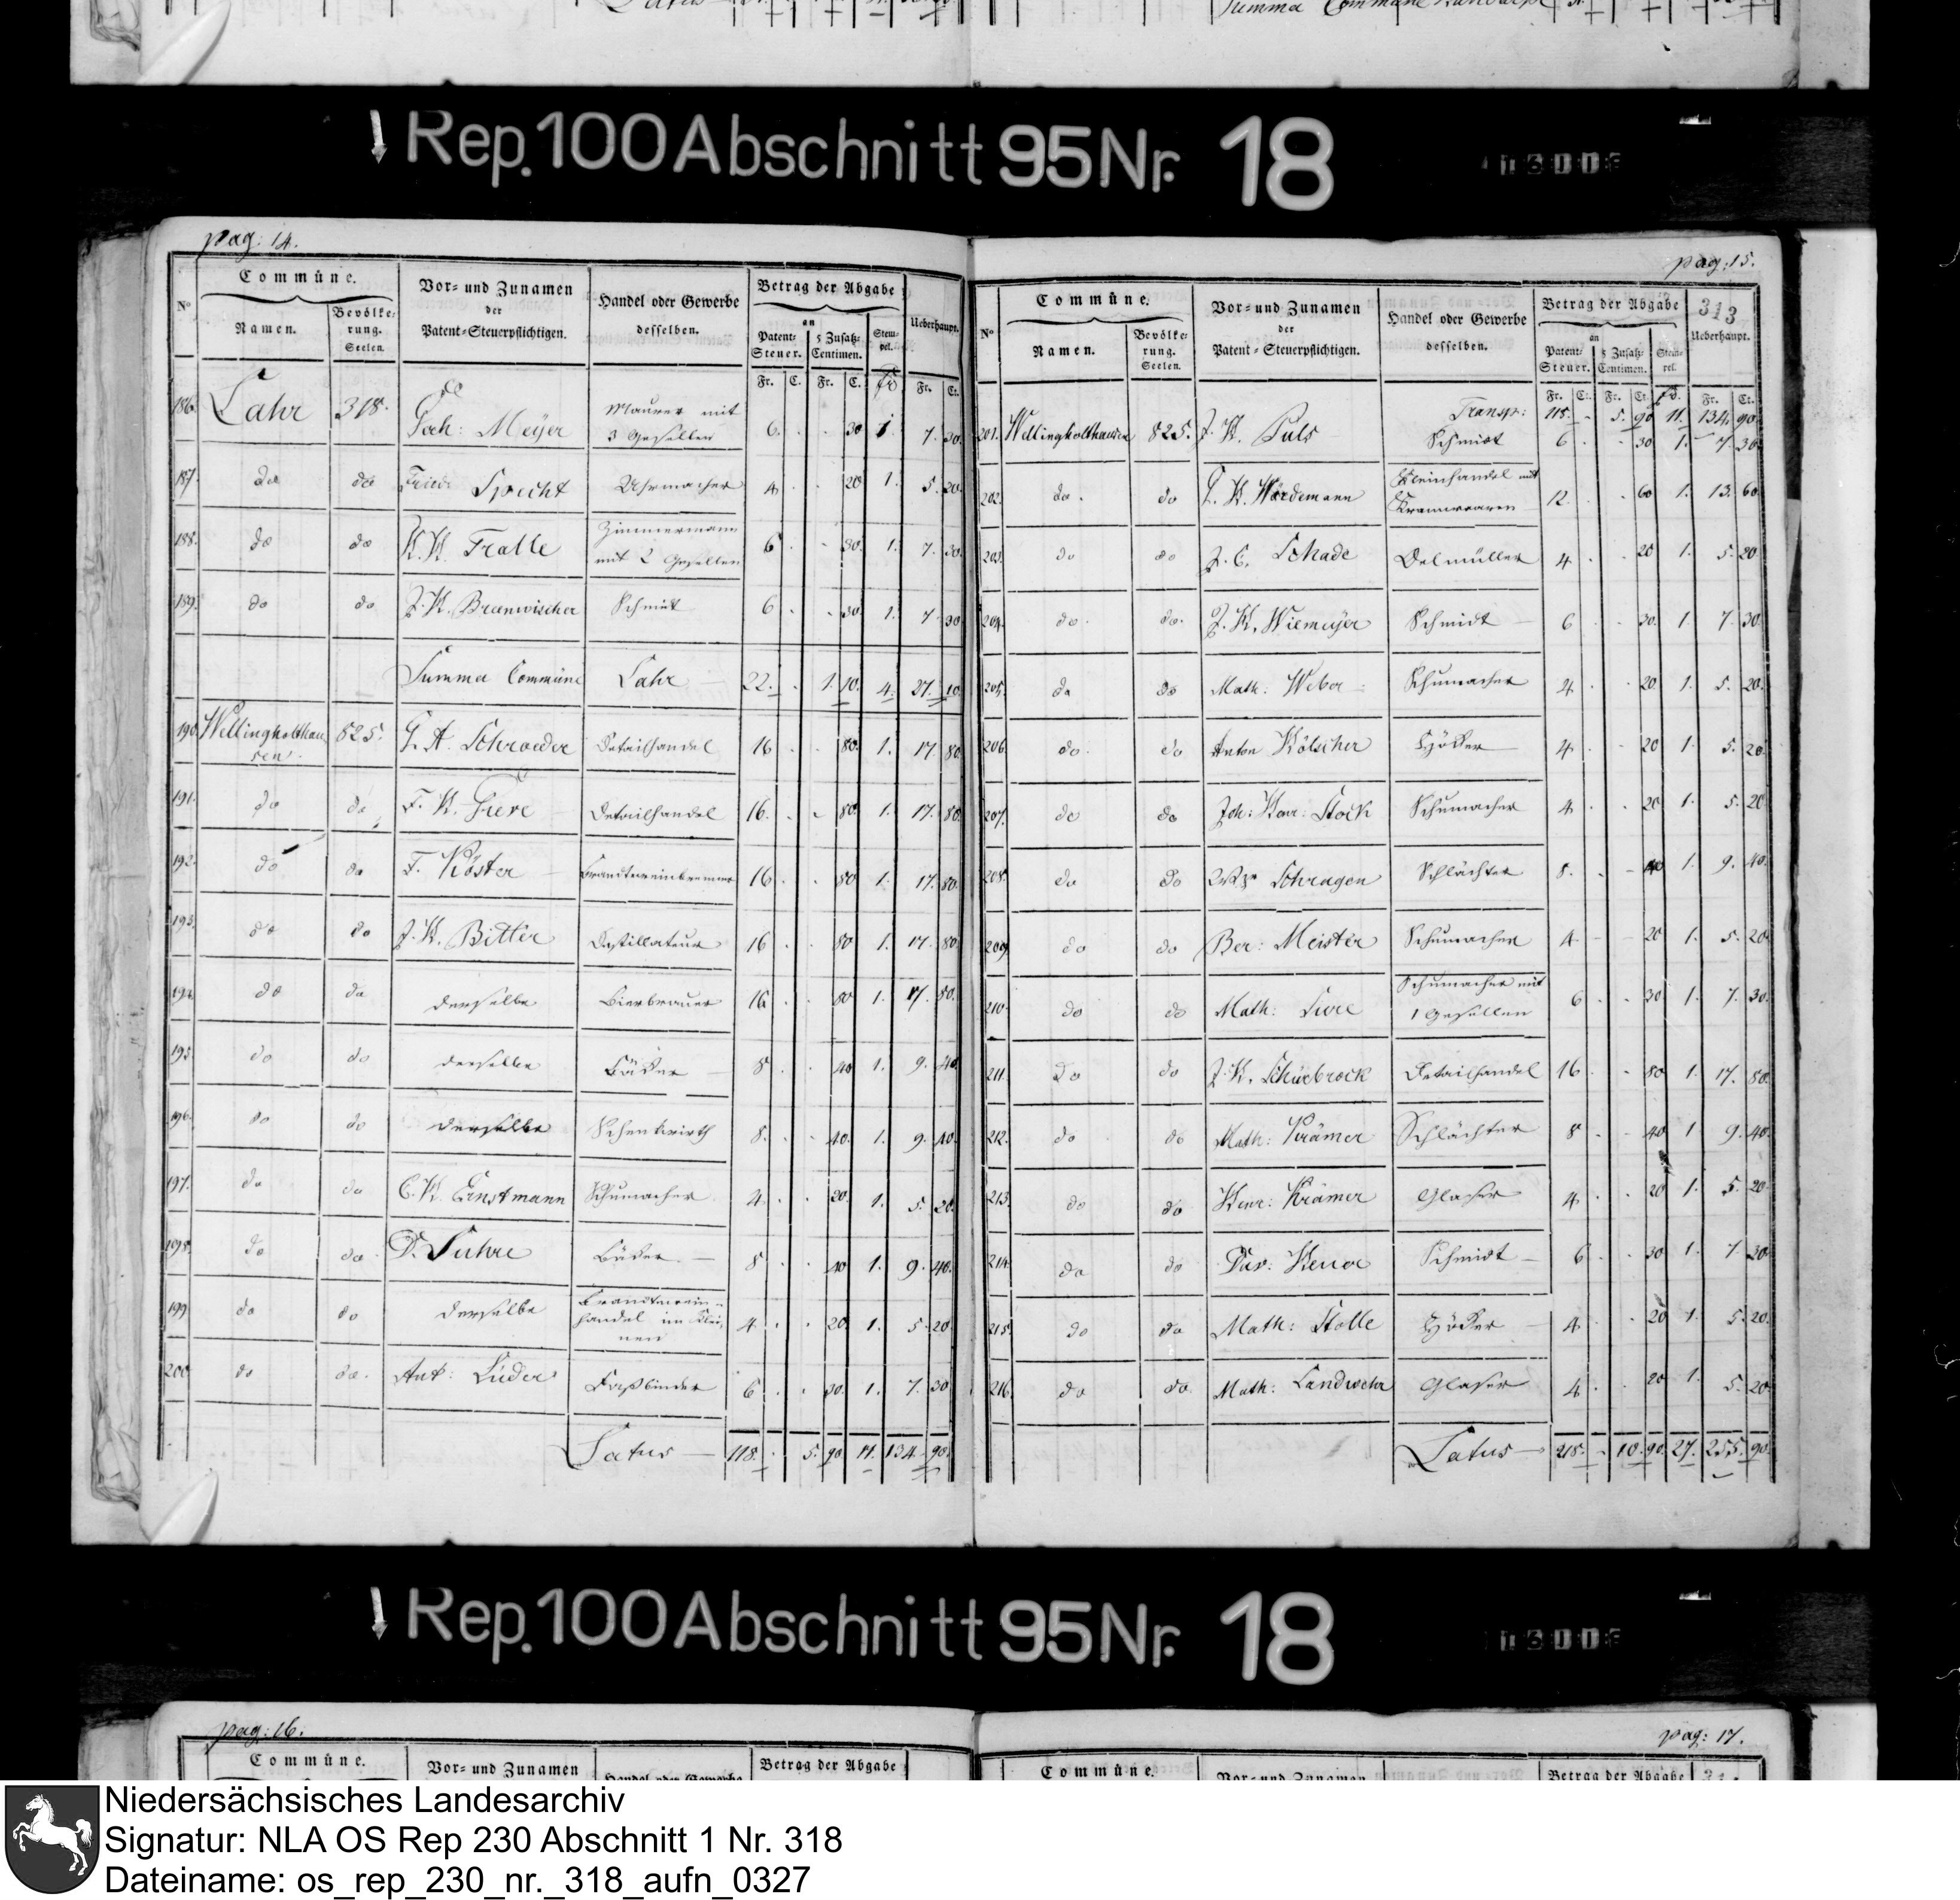 Rep. 100 Abschnitt 95 Nr. 18
pag: 14.
Commüne.
Nº
Namen.
Bevölkerung. Seelen.
Vor- und Zunamen der Patent-Steuerpflichtigen.
Handel oder Gewerbe desselben.
Betrag der Abgabe an
Patent-Steuer.
5 Zusatz-Centimen.
Stempel.
Ueberhaupt.
Fr. C. Fr. C. Fr. Ct.
186. Lahr 318. Meyer Maurer mit 3 Gesellen 6. 30 1. 7. 30.
187. do do Fried: Specht Uhrmacher 4. 20 1. 5. 20.
188. do do Tralle Zimmermann mit 2 Gesellen 6 30. 1. 7. 30.
189. do do Schmidt 6 30 1. 7. 30
Summa Commüne Lahr 22. 1. 10. 4. 27. 10.
190. Wellingholthausen. 825. Schroeder Detailhandel 16 80. 1. 17. 80.
191. do do Detailhandel 16. 80. 1. 17. 80.
192. do do F. Köster Brandtweinbrenner 16 80 1. 17. 80.
193. do do J. K. Bitter Destillateur 16 80 1. 17. 80.
194. do do derselbe Bierbrauer 16 80 1. 17. 80.
195. do do derselbe Bäcker 8 40 1. 9. 40.
196. do do derselbe Schenkwirth 8. 40. 1. 9. 40.
197. do do C. K. Ernstmann Schumacher 4. 20. 1. 5. 20.
198. do do Suhre Bäcker 8 40 1. 9. 40.
199 do do derselbe Brandtweinhandel im Kleinen 4. 20. 1. 5. 20
200 do do. Ant: Lüder Faßbinder 6 30. 1. 7. 30
Latus 118. 5. 90. 11. 134. 90.
pag: 15.
313
Commüne.
Nº
Namen.
Bevölkerung. Seelen.
Vor- und Zunamen der Patent-Steuerpflichtigen.
Handel oder Gewerbe desselben.
Betrag der Abgabe an
Patent-Steuer.
5 Zusatz-Centimen.
Stempel.
Ueberhaupt.
Fr. Ct. Fr. Ct. Fr. Ct.
Transp: 118. 5. 90 11. 134. 90.
201. Wellingholthausen 825. J. K. Puls Schmidt 6 30 1. 7. 30
202. do. do Kleinhandel mit Kramwaaren 12. 60 1. 13. 60
203. do do J. C. Schade Oelmüller 4 20 1. 5. 20
204. do. do. J. K. Wiemeyer Schmidt 6 30. 1. 7. 30.
205. do do Math: Weber Schumacher 4. 20. 1. 5. 20.
206 do. do Anton Kölscher Höcker 4. 20 1. 5. 20.
207. do do Joh: Stock Schumacher 4 20 1. 5. 20
208. do do Schragen Schlächter 8. 40 1. 9. 40.
209. do do Ber: Meister Schumacher 4. 20 1. 5. 20.
210. do do Math: Schumacher mit 1 Gesellen 6 30 1. 7. 30.
211. do do J. K. Schürbrock Detailhandel 16 80 1. 17. 80.
212. do do Math: Krämer Schlächter 8 40 1 9. 40.
213. do do Krämer Glaser 4 20 1. 5. 20
214. do do Schmidt 6 30 1. 7. 30.
215. do do Math: Stolle Höcker 4. 20 1. 5. 20.
216. do do. Math: Landwehr Glaser 4. 20 1. 5. 20
Latus 218. 10. 90. 27. 255. 90
Rep. 100 Abschnitt 95 Nr. 18
pag: 16.
Commüne.
Vor- und Zunamen
Betrag der Abgabe
pag: 17.
Commüne.
Betrag der Abgabe
Niedersächsisches Landesarchiv
Signatur: NLA OS Rep 230 Abschnitt 1 Nr. 318
Dateiname: os_rep_230_nr._318_aufn_0327